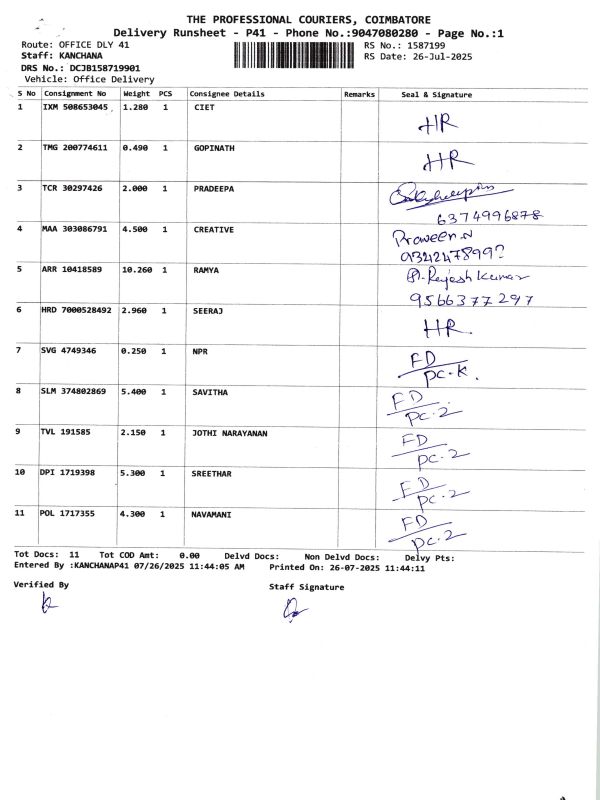 THE PROFESSIONAL COURIERS, COIMBATORE
Delivery Runsheet - P41 - Phone No.:9047080280 - Page No.:1
Route: OFFICE DLY 41 RS No.: 1587199
Staff: KANCHANA RS Date: 26-Jul-2025
DRS No.: DCJB158719901
Vehicle: Office Delivery
S No Consignment No Weight PCS Consignee Details Remarks Seal & Signature
1 IXM 508653045 1.280 1 CIET HR
2 TMG 200774611 0.490 1 GOPINATH HR
3 TCR 30297426 2.000 1 PRADEEPA
6374996878
4 MAA 303086791 4.500 1 CREATIVE Praveen.N
5 ARR 10418589 10.260 1 RAMYA Rajesh Kumar
9566377297
6 HRD 7000528492 2.960 1 SEERAJ HR.
7 SVG 4749346 0.250 1 NPR FD
PC-K.
8 SLM 374802869 5.400 1 SAVITHA FD
PC-2
9 TVL 191585 2.150 1 JOTHI NARAYANAN FD
PC-2
10 DPI 1719398 5.300 1 SREETHAR FD
PC-2
11 POL 1717355 4.300 1 NAVAMANI FD
PC-2
Tot Docs: 11 Tot COD Amt: 0.00 Delvd Docs: Non Delvd Docs: Delvy Pts:
Entered By :KANCHANAP41 07/26/2025 11:44:05 AM Printed On: 26-07-2025 11:44:11
Verified By Staff Signature